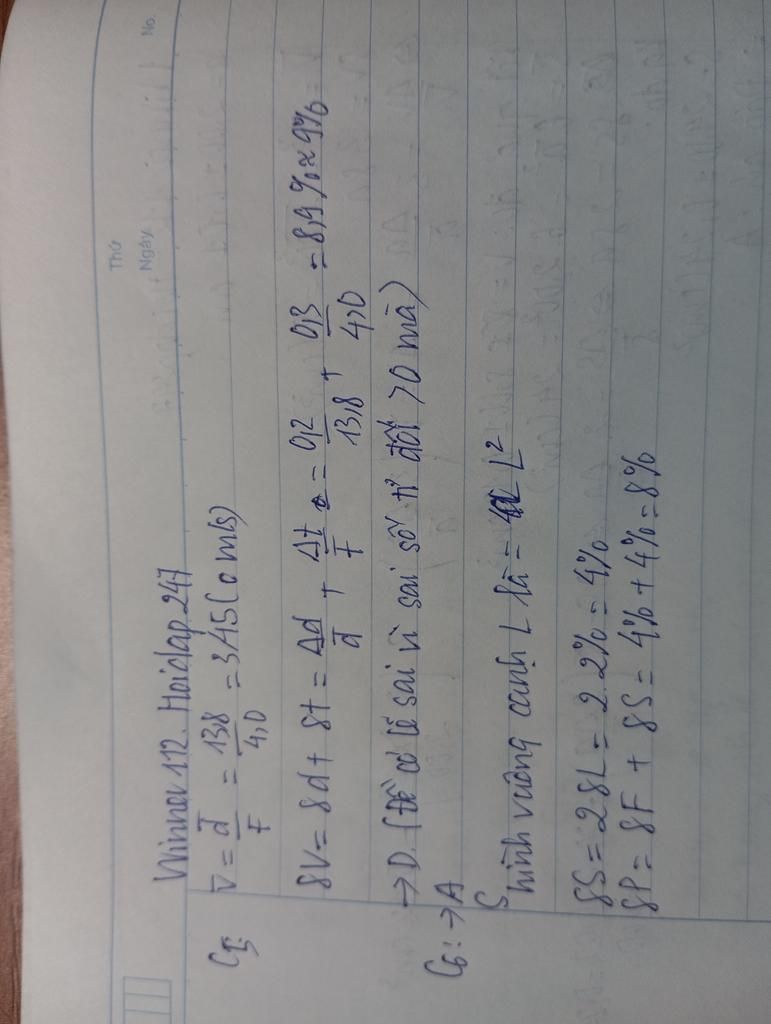 Thứ
Ngày
No.
Winner 112. Hoidap 247
C5: v̄ = d̄/t̄ = 13,8/4,0 = 3,45 (m/s)
δV = δd + δt = Δd/d̄ + Δt/t̄ = 0,2/13,8 + 0,3/4,0 = 8,9% ≈ 9%
→ D. (Đề có lẽ sai vì sai số tỉ đối > 0 mà)
C6: → A
S hình vuông cạnh L là = L²
δS = 2δL = 2.2% = 4%
δP = δF + δS = 4% + 4% = 8%